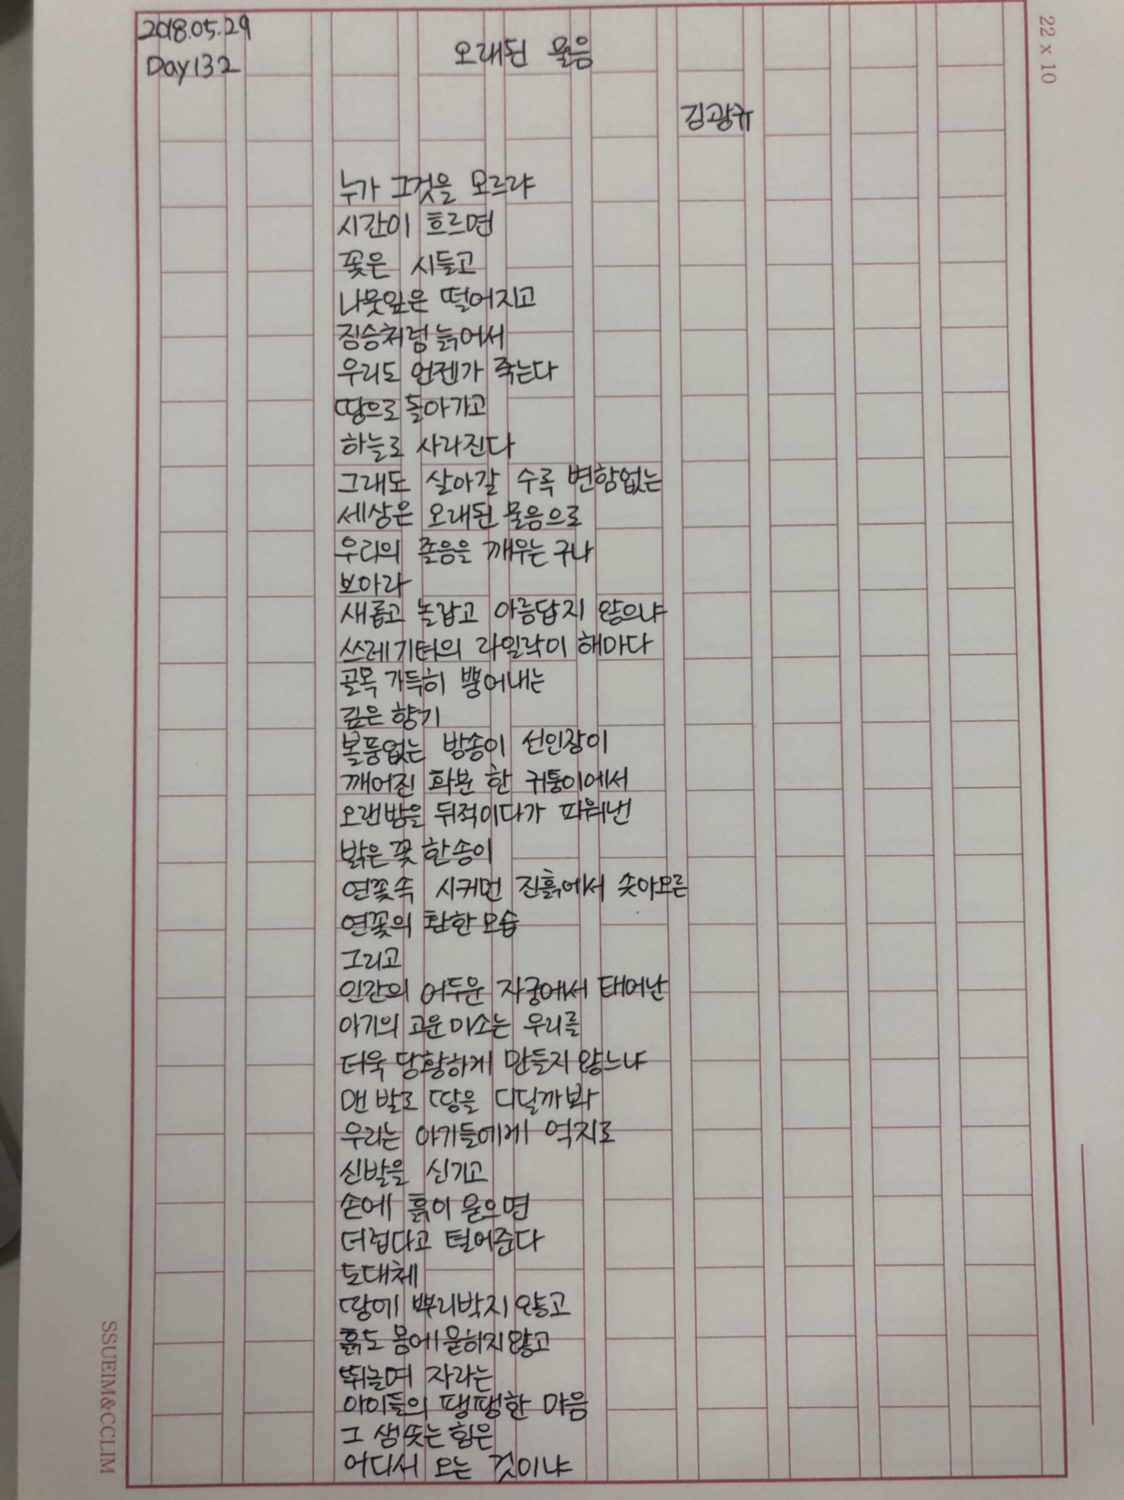 2018.05.29
Day132
오래된 물음
22 x 10
김광규
누가 그것을 모르랴
시간이 흐르면
꽃은 시들고
나뭇잎은 떨어지고
짐승처럼 늙어서
우리도 언젠가 죽는다
땅으로 돌아가고
하늘로 사라진다
그래도 살아갈 수록 변함없는
세상은 오래된 물음으로
우리의 졸음을 깨우는 구나
보아라
새롭고 놀랍고 아름답지 않으냐
쓰레기터의 라일락이 해마다
골목 가득히 뿜어내는
깊은 향기
볼품없는 방송이 선인장이
깨어진 화분 한 귀퉁이에서
오랜밤을 뒤척이다가 피워낸
밝은 꽃 한송이
연꽃속 시커먼 진흙에서 솟아오른
연꽃의 환한 모습
그리고
인간의 어두운 자궁에서 태어난
아기의 고운 미소는 우리를
더욱 당황하게 만들지 않느냐
맨 발로 땅을 디딜까봐
우리는 아기들에게 억지로
신발을 신기고
손에 흙이 묻으면
더럽다고 털어준다
도대체
땅에 뿌리박지 않고
흙도 몸에 묻히지 않고
뛰놀며 자라는
아이들의 팽팽한 마음
그 샘솟는 힘은
어디서 오는 것이냐
SSUEIM&CCLIM